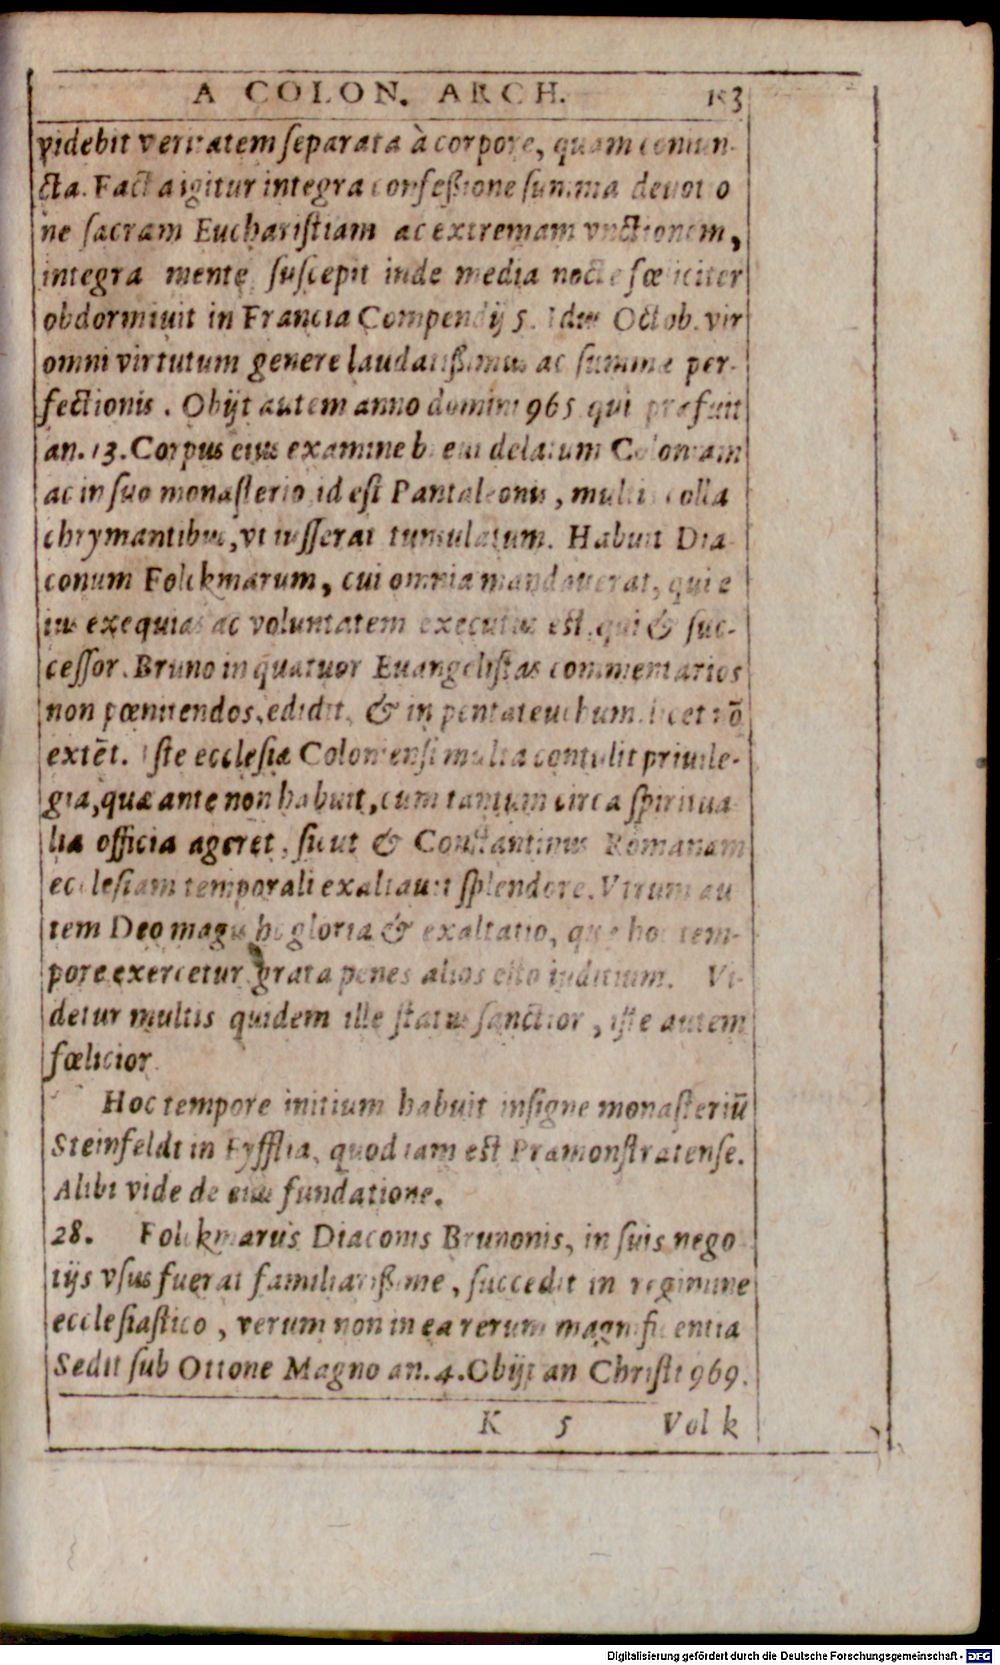 A COLON. ARCH. 153
videbit veritatem ſeparata à corpore, quam coniun-
cta. Facta igitur integra confeßione ſumma deuotio
ne ſacram Euchariſtiam ac extremam vnctionem,
integra mente ſuſcepit inde media nocte fœliciter
obdormiuit in Francia Compendij 5. Idus Octob. vir
omni virtutum genere laudatißimus ac ſummæ per-
fectionis. Obijt autem anno domini 965 qui præfuit
an. 13. Corpus eius examine delatum Coloniam
ac in ſuo monaſterio id eſt Pantaleonis, multis colla
chrymantibus, vt iuſſerat tumulatum. Habuit Dia
conum Folckmarum, cui omnia mandauerat, qui e
ius exequias ac voluntatem executus est, qui & ſuc-
ceſſor. Bruno in quatuor Euangeliſtas commentarios
non pœnitendos, edidit, & in pentateuchum, licet nõ
extẽt. Iſte eccleſiæ Colonienſi multa contulit priuile-
gia, quæ ante non habuit, cum tantum circa ſpiritua
lia officia ageret, ſicut & Conſtantinus Romanam
eccleſiam temporali exaltauit ſplendore. Vtrum au
tem Deo magis hęc gloria & exaltatio, quę hoc tem-
pore exercetur grata penes alios eſto iuditium. Vi-
detur multis quidem ille ſtatus ſanctior, iſte autem
fœlicior.
Hoc tempore initium habuit inſigne monaſteriũ
Steinfeldt in Eyfflia, quod iam est Præmonſtratenſe.
Alibi vide de eius fundatione.
28. Folckmarus Diaconus Brunonis, in ſuis nego
tijs vſus fuerat familiarißime, ſuccedit in regimine
eccleſiaſtico, verum non in ea rerum magnificentia
Sedit ſub Ottone Magno an. 4. Obijt an Chriſti 969.
K 5 Volk
Digitalisierung gefördert durch die Deutsche Forschungsgemeinschaft - DFG